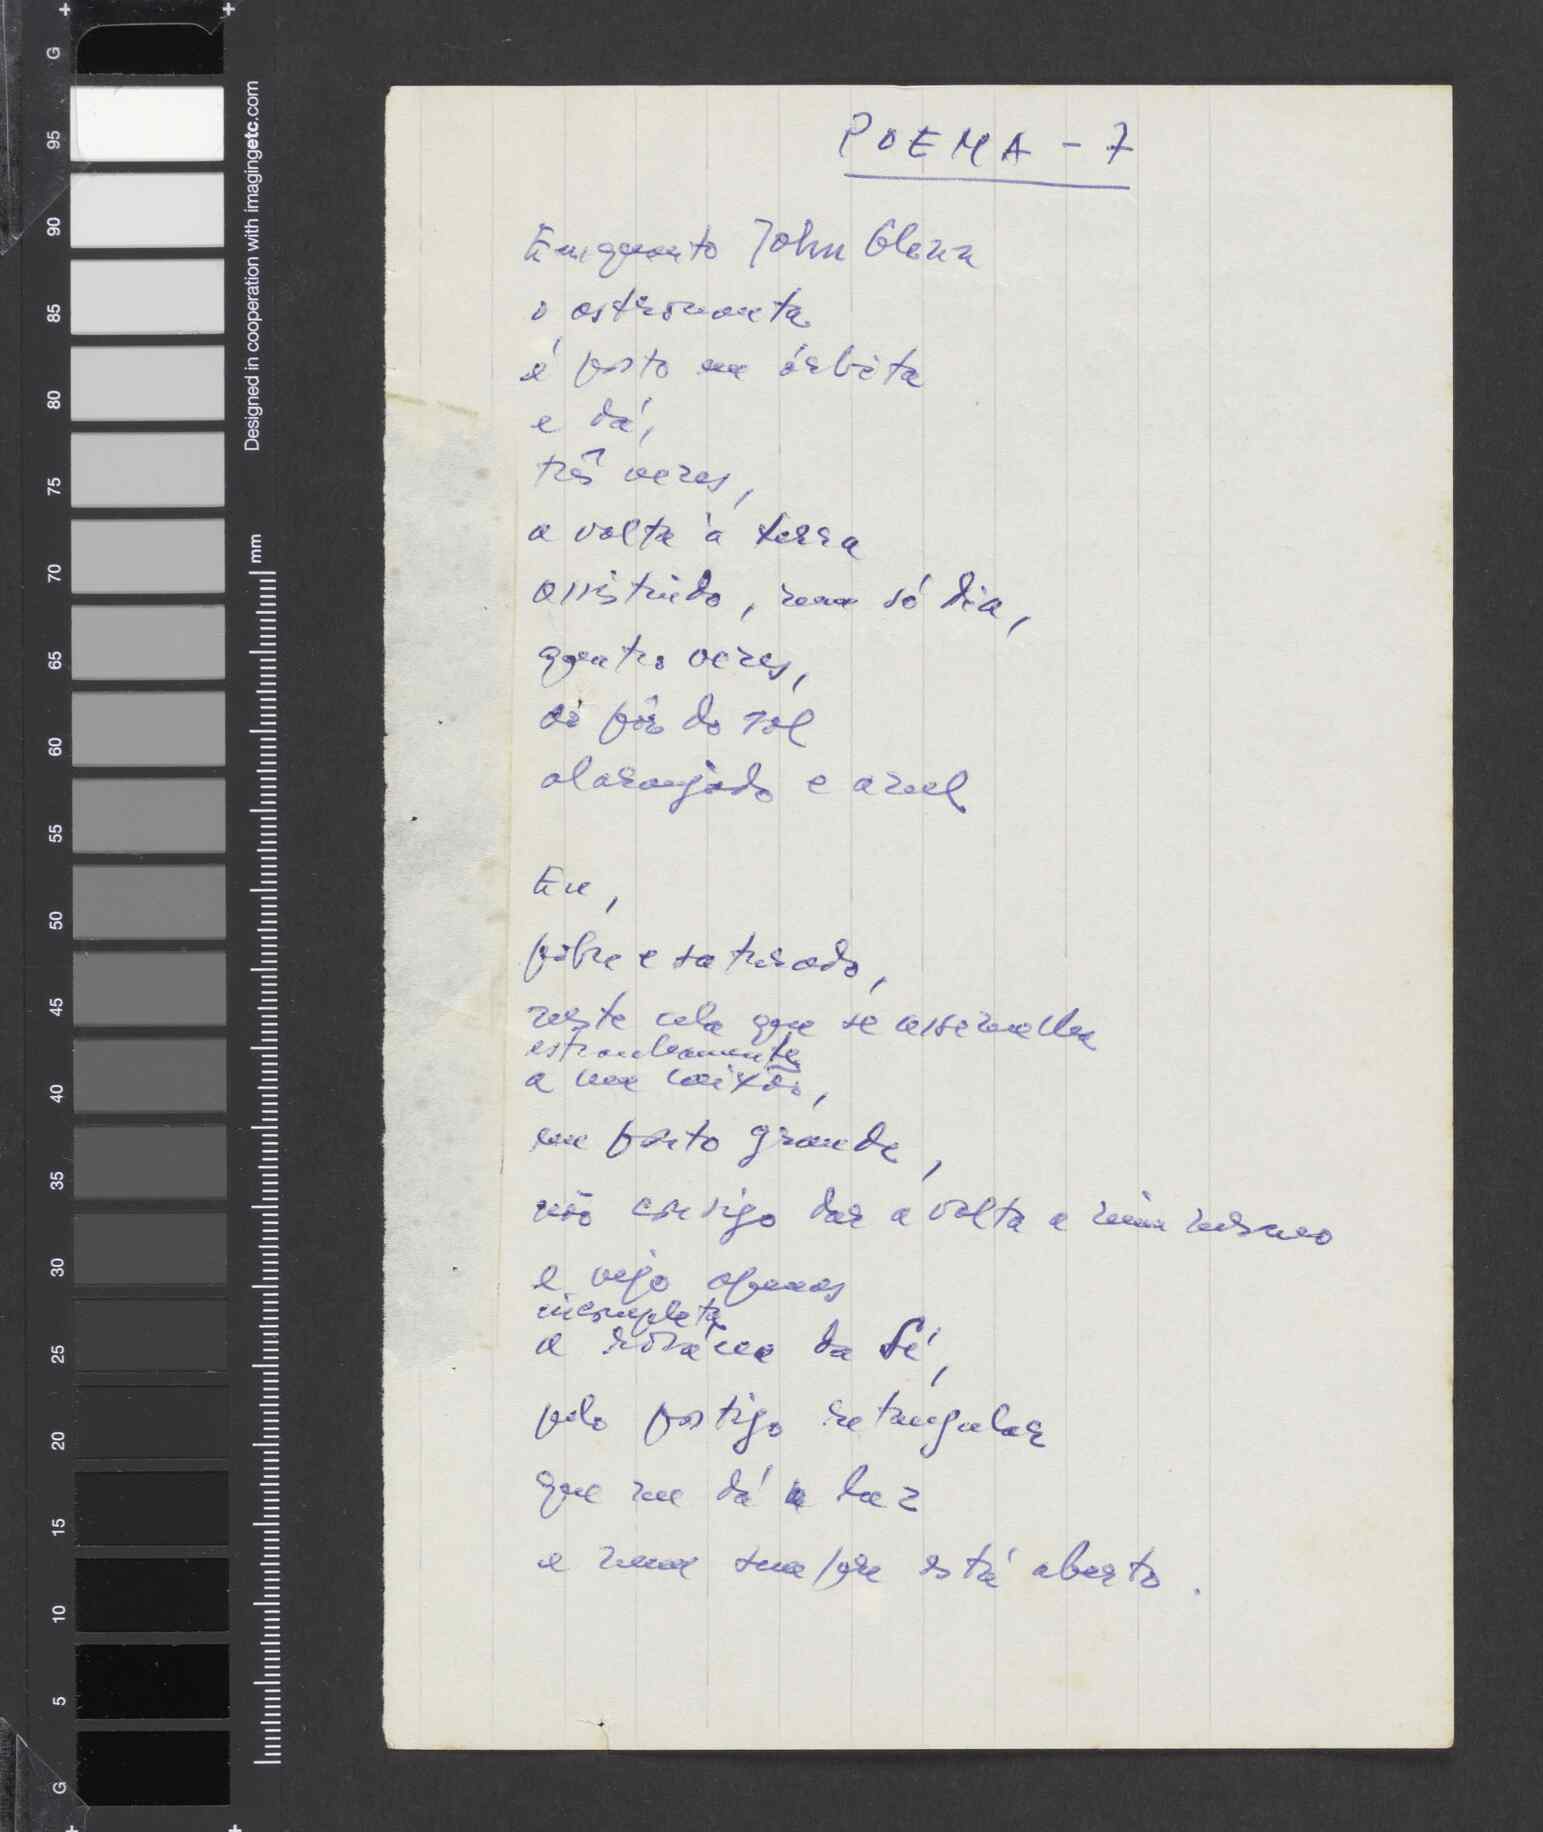 G
95
90
85
80
75
70
65
60
55
50
45
40
35
30
25
20
15
10
5
G
Designed in cooperation with imagingetc.com
mm
POEMA - 7
Enquanto John Glenn
o astronauta
é posto em órbita
e dá,
três vezes,
a volta à terra
assistindo, num só dia,
quatro vezes,
ao pôr do sol
alaranjado e azul
Eu,
pobre e saturado,
neste cela que se assemelha
estranhamente
a um caixão,
em ponto grande,
não consigo dar a volta a mim mesmo
e vejo apenas
incompleta
a rosácea da Sé,
pelo postigo retangular
que me dá a luz
e nem sempre está aberto.